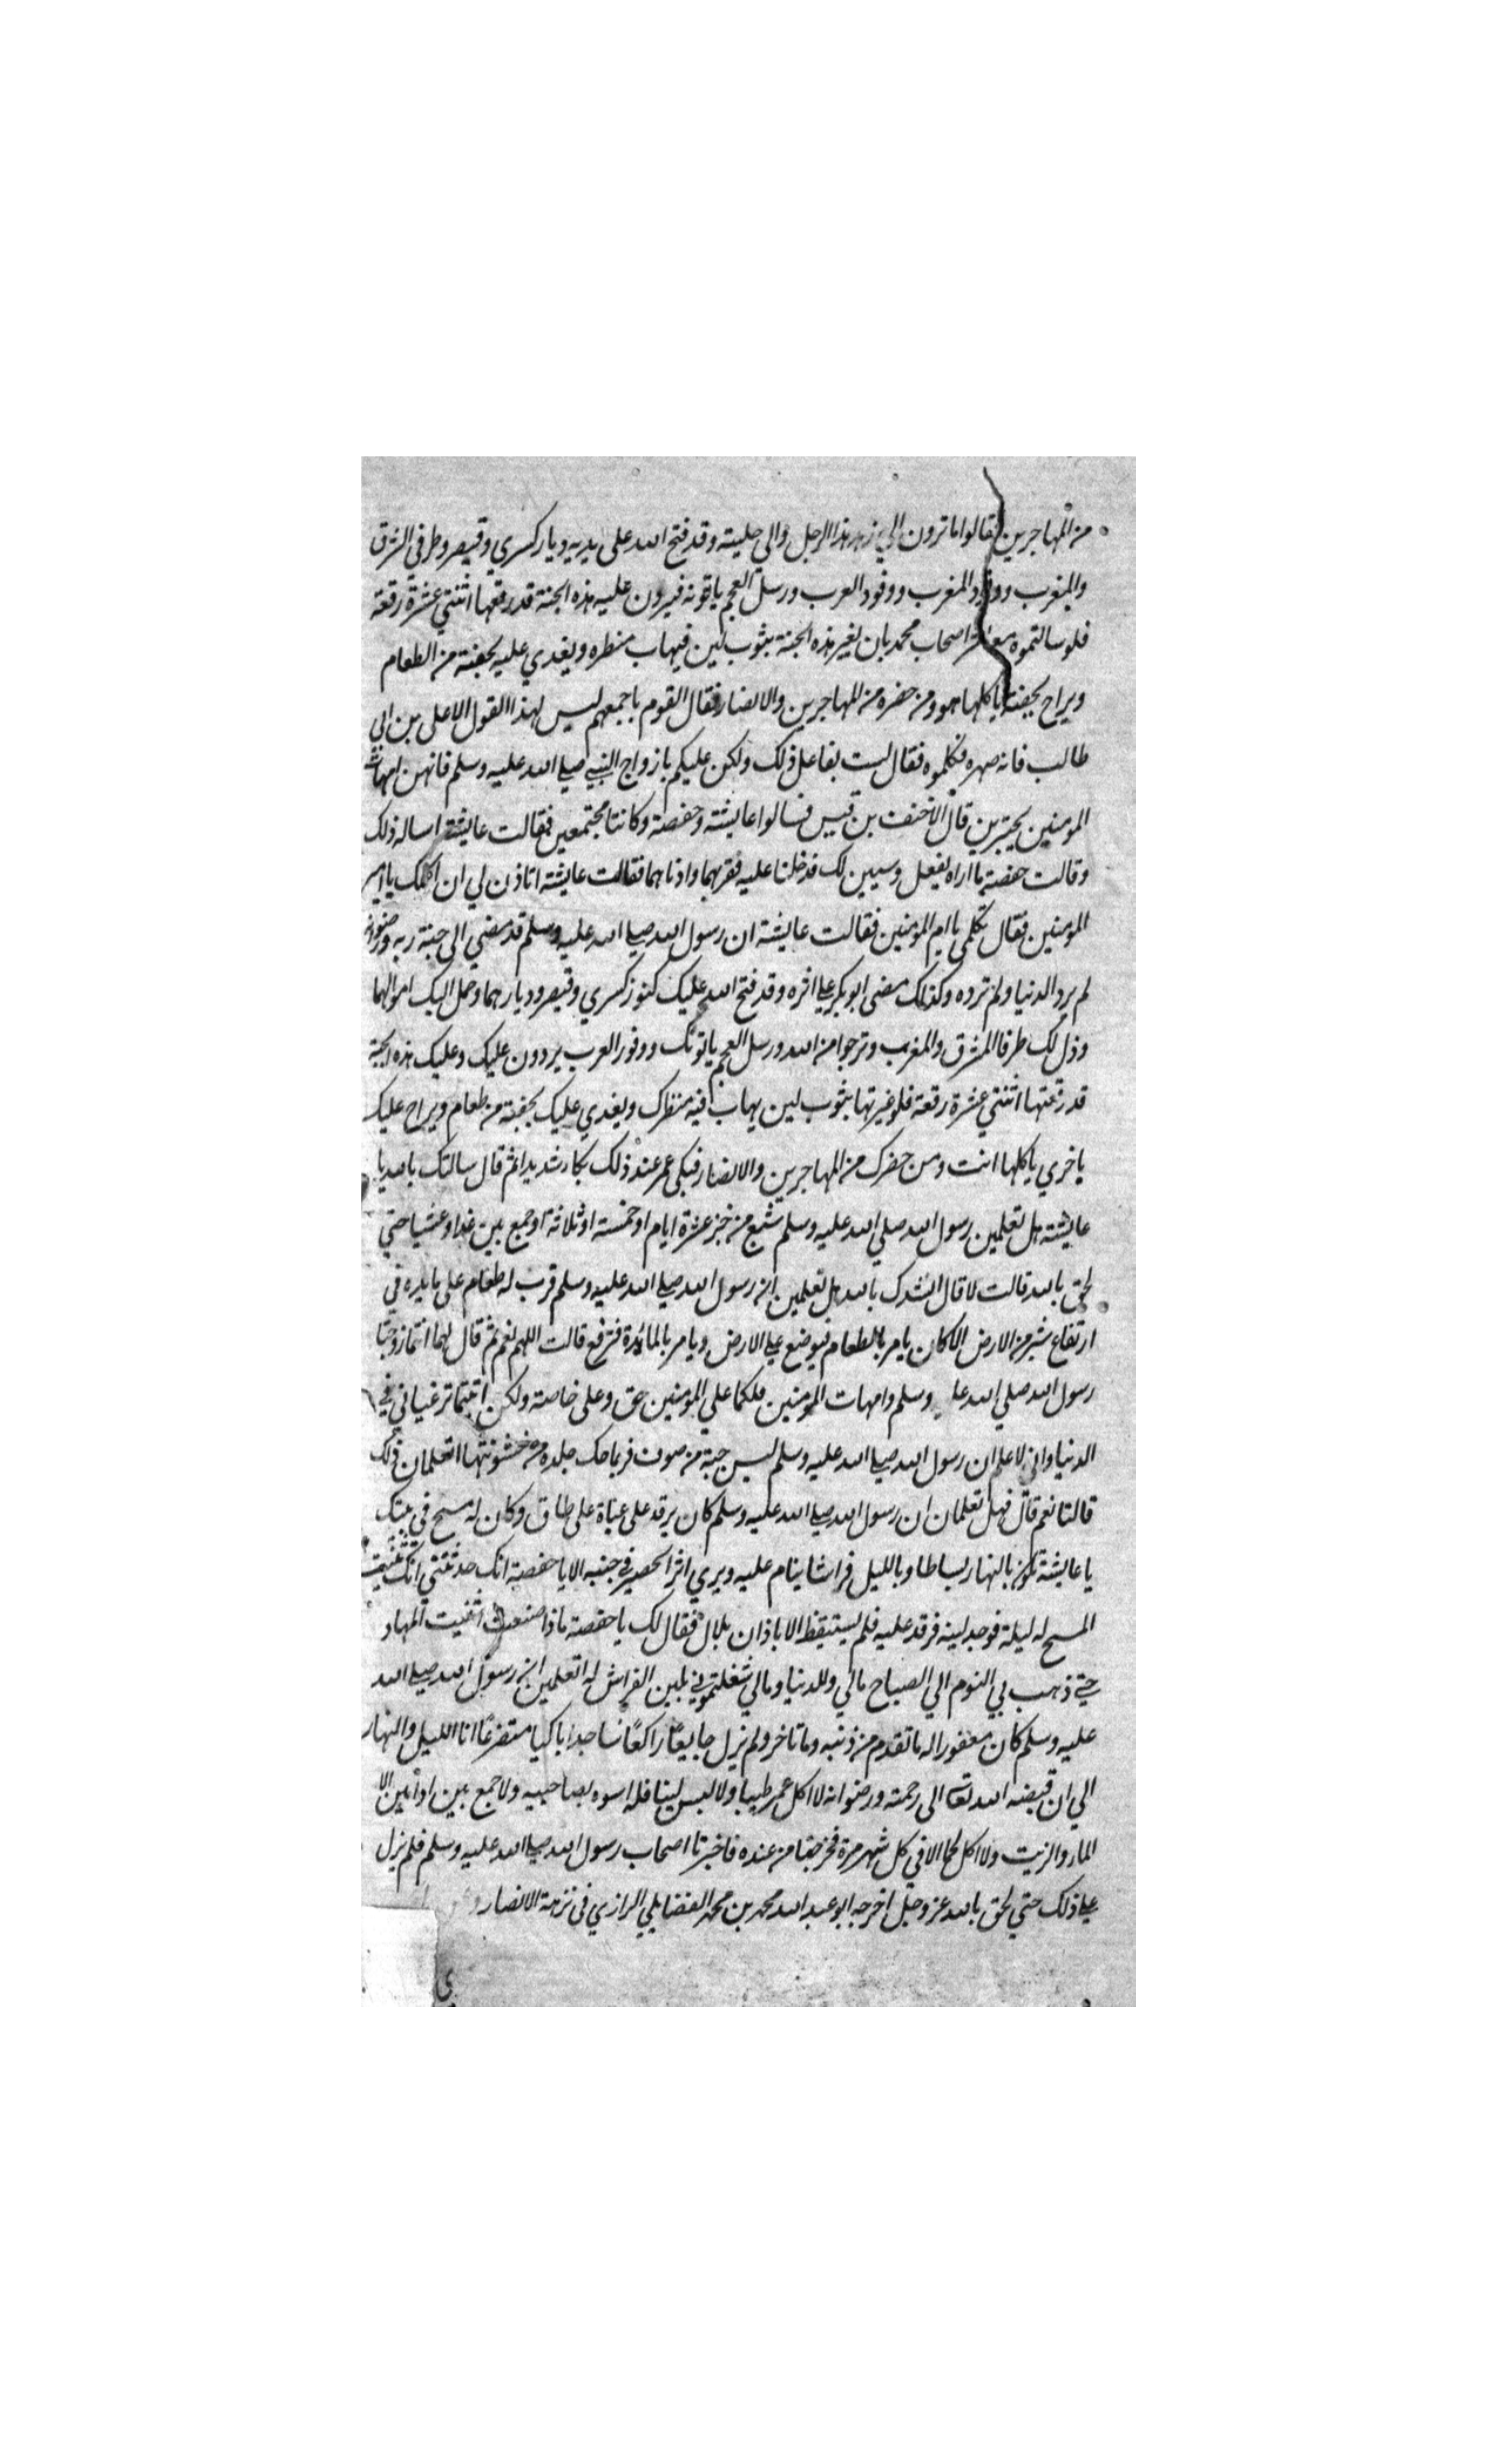 من المهاجرين فقالوا ما ترون الي زهد هذا الرجل والي حليته وقد فتح الله على يديه ديار كسري وقيصر وطرفي الشرق
والمغرب ووفود المغرب ووفود العرب ورسل العجم ياتونه فيرون عليه هذه الجبة قد رقعها اثنتي عشرة رقعة
فلو سالتموه معاشر اصحاب محمد بان يغير هذه الجبة بثوب لين فيهاب منظره ويغدي عليه بجفنة من الطعام
ويراح بجفنة ياكلها هو ومن حضره من المهاجرين والانصار فقال القوم باجمعهم ليس لهذا القول الا على بن ابي
طالب فانه صهره فكلموه فقال لست بفاعل ذلك ولكن عليكم بازواج النبي صلي الله عليه وسلم فانهن امهات
المومنين يجترين قال الاحنف بن قيس فسالوا عايشة وحفصة وكانتا مجتمعين فقالت عايشة اساله ذلك
وقالت حفصة ما اراه يفعل وسيبين لك فدخلتا عليه فقربهما وادناهما فقالت عايشة اتاذن لي ان اكلمك يا امير
المومنين فقال تكلمي يا ام المومنين فقالت عايشة ان رسول الله صلي الله عليه وسلم قد مضي الى جنة ربه ورضوانه
لم يرد الدنيا ولم ترده وكذلك مضى ابو بكر علي اثره وقد فتح الله عليك كنوز كسري وقيصر وديارهما وحمل اليك اموالهما
وذل لك طرفا المشرق والمغرب وترجوا من الله ورسل العجم ياتونك ووفود العرب يردون عليك وعليك هذه الجبة
قد رقعتها اثنتي عشرة رقعة فلو غيرتها بثوب لين يهاب فيه منظرك ويغدي عليك بجفنة من طعام ويراح عليك
باخري ياكلها انت ومن حضرك من المهاجرين والانصار فبكى عمر عند ذلك بكاء شديدا ثم قال سالتك بالله يا
عايشة هل تعلمين رسول الله صلي الله عليه وسلم شبع من خبز عشرة ايام او خمسة او ثلاثة او جمع بين غدا وعشيا حتي
لحق بالله قالت لا قال انشدك بالله هل تعلمين ان رسول الله صلي الله عليه وسلم قرب له طعام على مايدة في
ارتفاع شبر من الارض الا كان يامر بالطعام فيوضع علي الارض ويامر بالمائدة فترفع قالت اللهم نعم ثم قال لهما انتما زوجتا
رسول الله صلي الله عليه وسلم وامهات المومنين فلكما علي المومنين حق وعلى خاصة ولكن اتيتما ترغباني في
الدنيا واني لاعلم ان رسول الله صلي الله عليه وسلم لبس جبة من صوف فربما حك جلده من خشونتها اتعلمان ذلك
قالتا نعم قال فهل تعلمان ان رسول الله صلي الله عليه وسلم كان يرقد على عباة على طاق وكان له مسح في بيتك
يا عايشة تكون بالنهار بساطا وبالليل فراشا ينام عليه ويري اثر الحصير في جنبه الا يا حفصة انك حدثتني انك ثنيت
المسح له ليلة فوجد لينه فرقد عليه فلم يستيقظ الا باذان بلال فقال لك يا حفصة ماذا صنعت اثنيت المهاد
حتي ذهب بي النوم الي الصباح مالي وللدنيا ومالي شغلتموني بلين الفراش له اتعلمين ان رسول الله صلي الله
عليه وسلم كان مغفورا له ما تقدم من ذنبه وما تاخر ولم يزل جايعًا راكعًا ساجدا باكيا متضرعًا انا الليل والنهار
الي ان قبضه الله تعالى الى رحمته ورضوانه لا اكل عمر طيبا ولا لبس لينا فله اسوه بصاحبيه ولا جمع بين ادامين الا
الماء والزيت ولا اكل لحما الا في كل شهر مرة فخرجتا من عنده فاخبرتا اصحاب رسول الله صلي الله عليه وسلم فلم يزل
علي ذلك حتي لحق بالله عز وجل اخرجه ابو عبد الله محمد بن محمد الفضايلي الرازي في نزهة الابصار